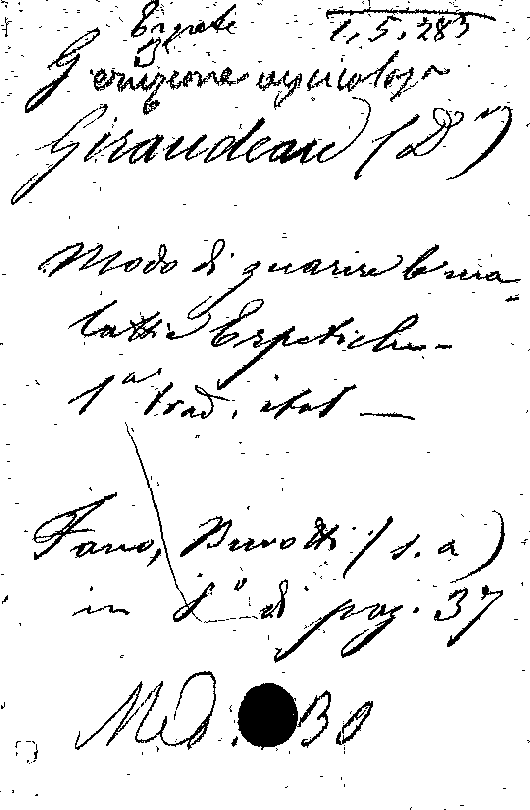 Erpete 1.5.283
Giraudeau (Dr)
Modo di guarire le ma-
lattie Erpetiche -
1a trad. ital -
Fano, Burotti (s. a)
in 8° di pag. 37
Med. B 0